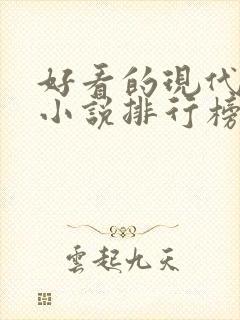 好看的現代
小說排行榜
雲起九天